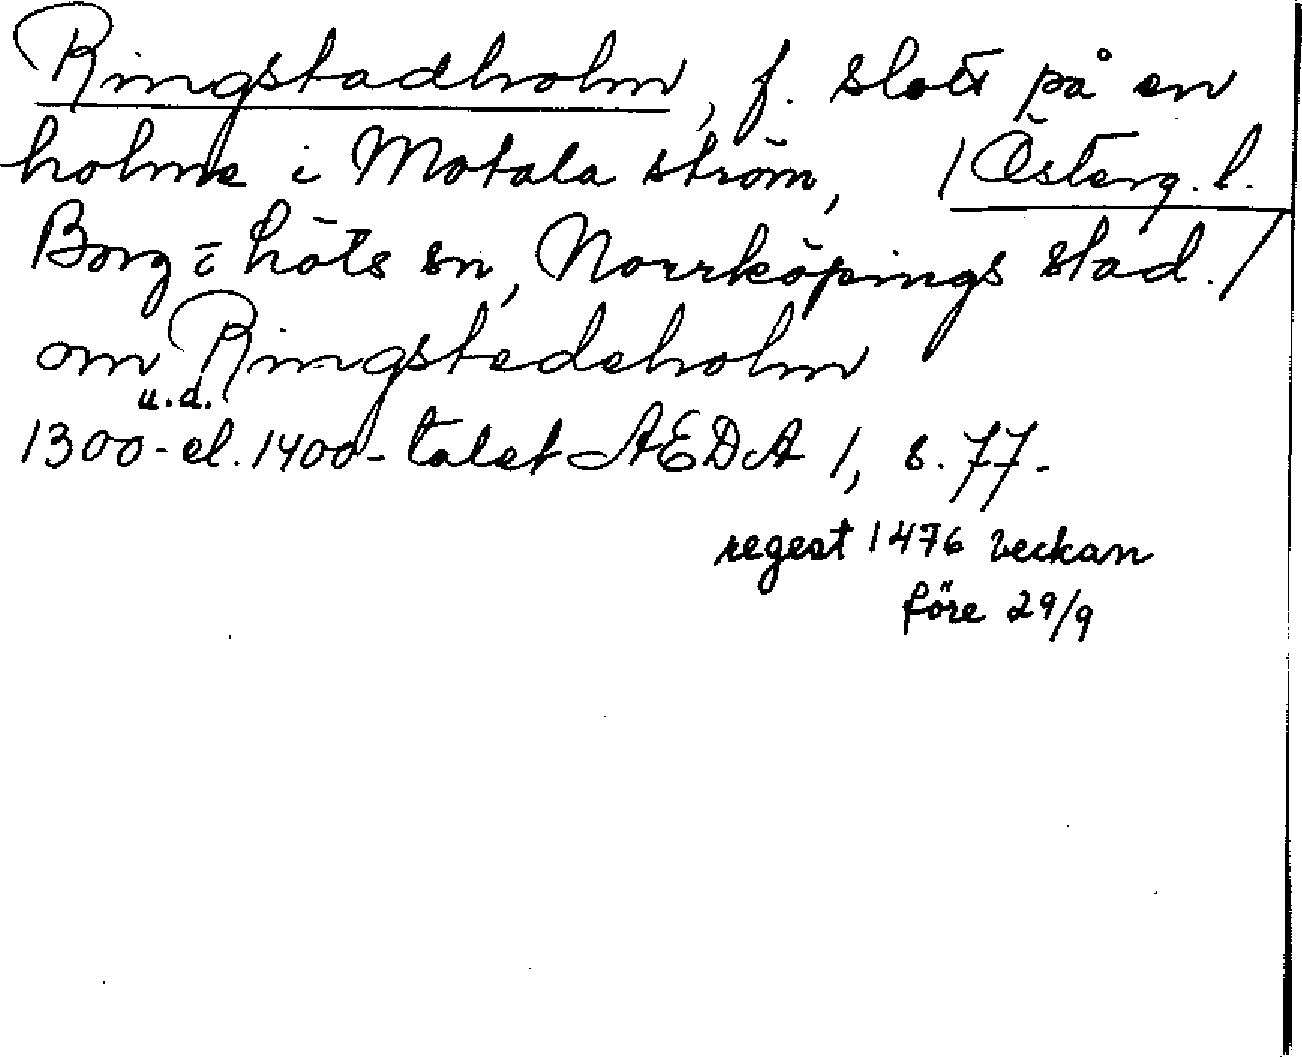 Ringstadholm, f. slott på en
holme i Motala ström, / Österg. l.
Borg = höts sn, Norrköpings stad. /
om Ringstedeholm
u.d.
1300- el. 1400-talet AEDA 1, s. 77.
regest 1476 veckan
före 29/9